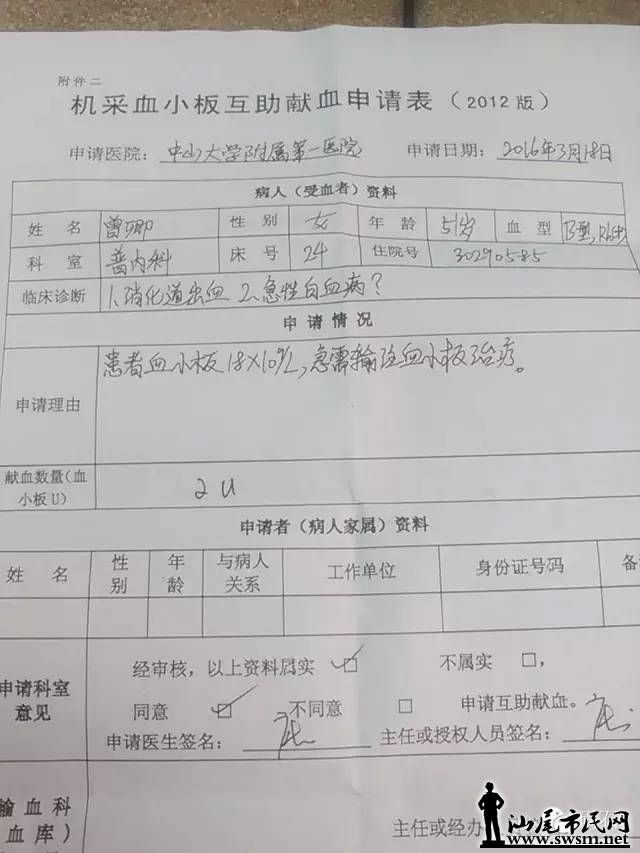 附件二
机采血小板互助献血申请表（2012版）
申请医院：中山大学附属第一医院 申请日期：2016年3月18日
病人（受血者）资料
姓名 曾卿 性别 女 年龄 51岁 血型 B型,Rh(+)
科室 普内科 床号 24 住院号 30290585
临床诊断 1.消化道出血 2.急性白血病?
申请情况
申请理由 患者血小板18×10^9/L,急需输注血小板治疗。
献血数量(血
小板U) 2U
申请者（病人家属）资料
姓名 性别 年龄 与病人关系 工作单位 身份证号码 备
申请科室意见
经审核，以上资料属实 ☑ 不属实 □，
同意 ☑ 不同意 □ 申请互助献血。
申请医生签名： 主任或授权人员签名：
输血科
血库）
主任或经办
汕尾市民网
www.swsm.net